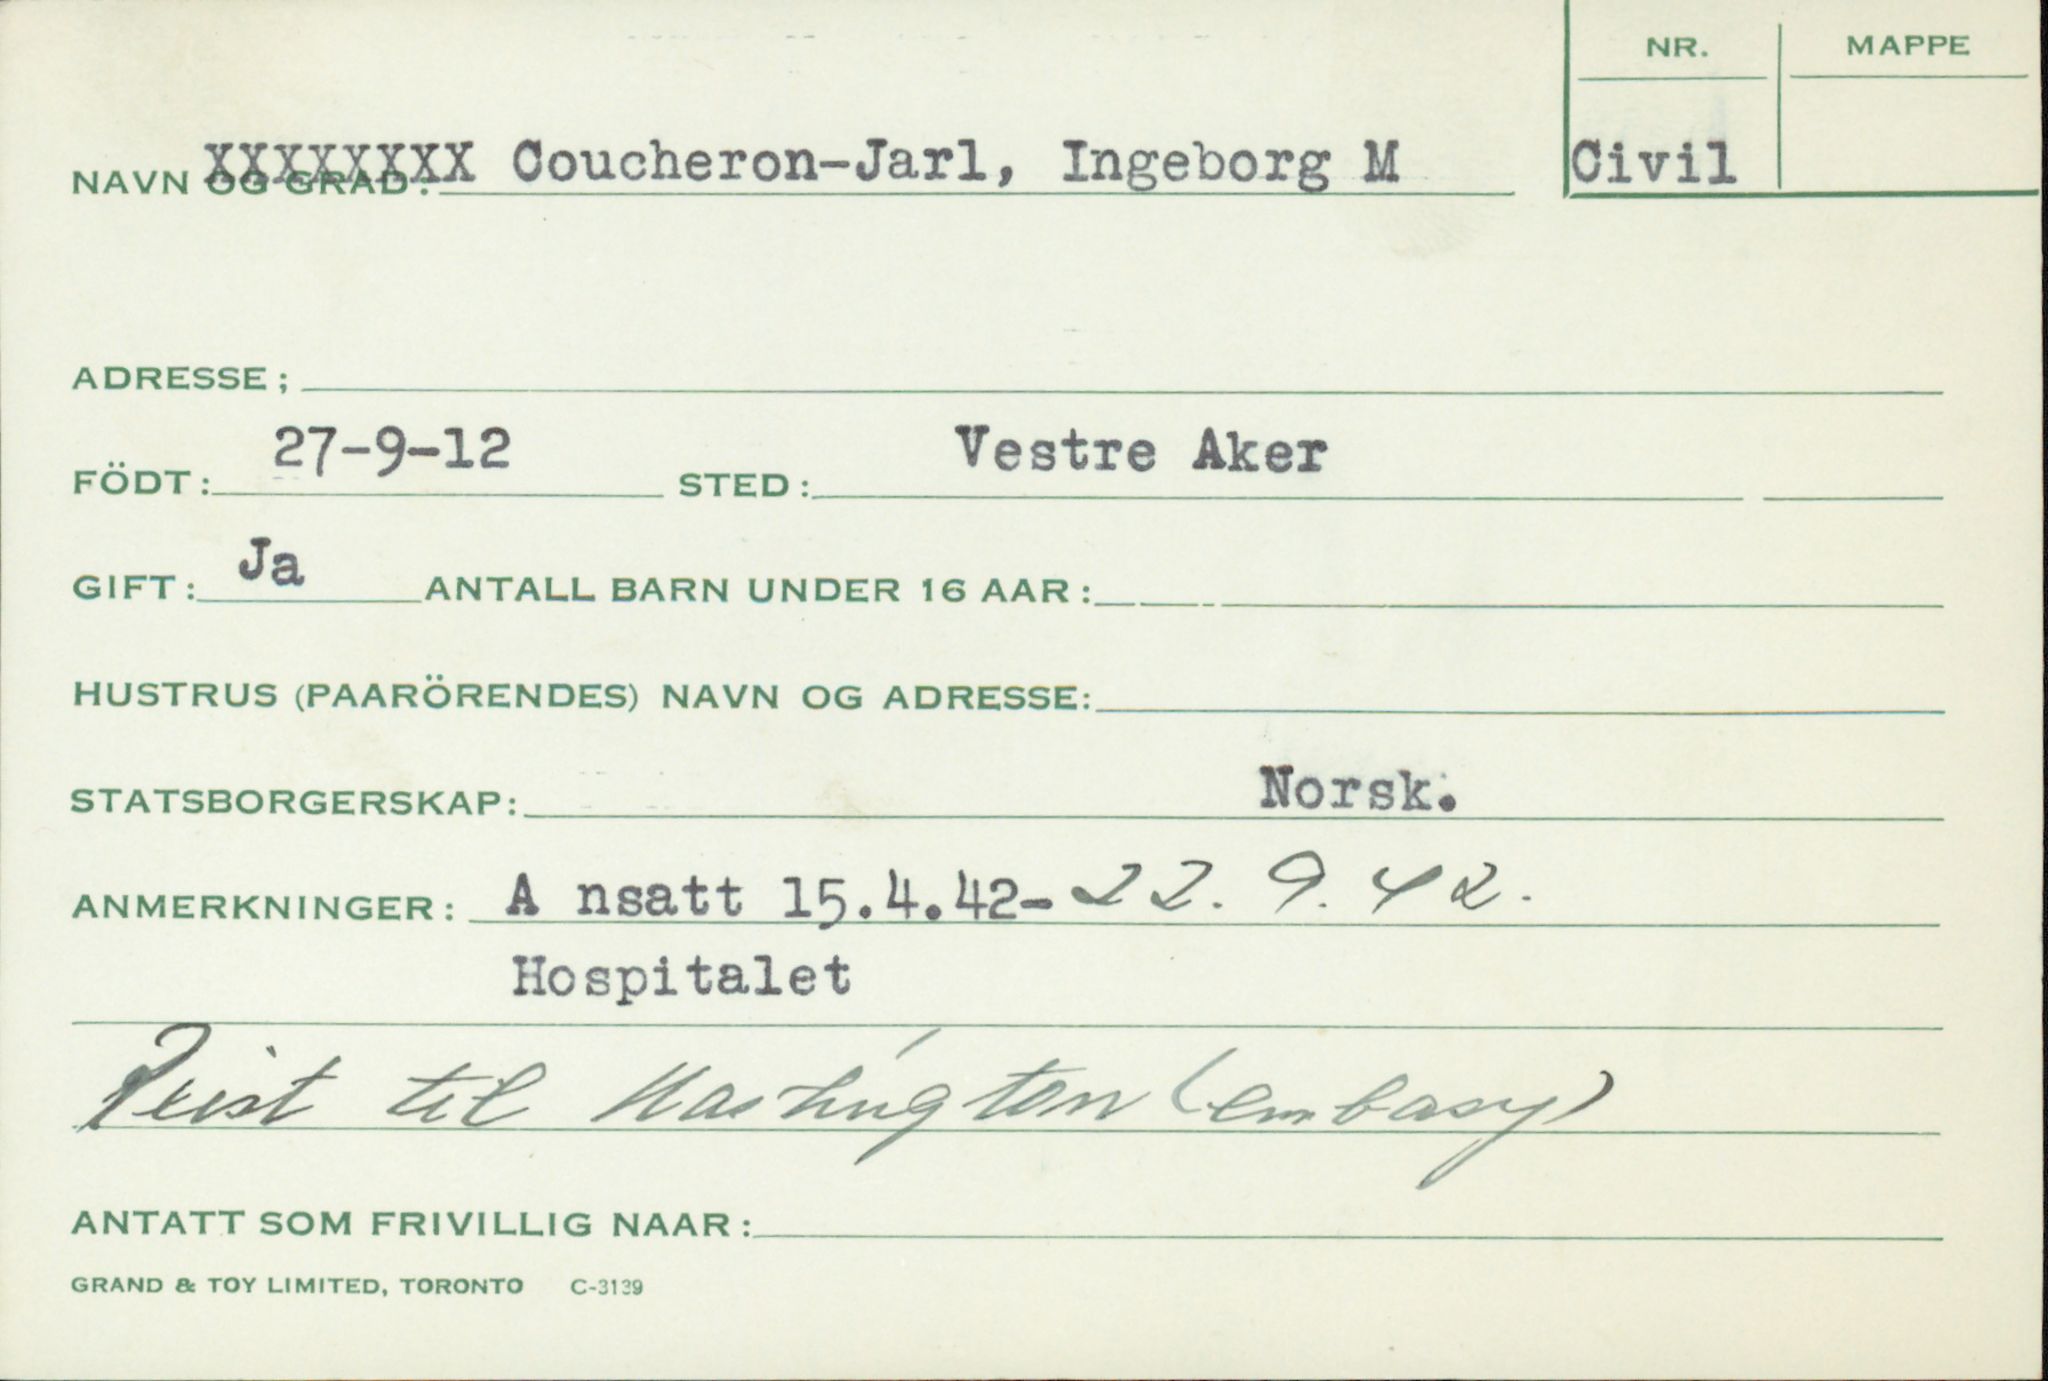 NR. MAPPE
NAVN OG GRAD: XXXXXXXX Coucheron-Jarl, Ingeborg M Civil
ADRESSE;
FÖDT: 27-9-12 STED: Vestre Aker
GIFT: Ja ANTALL BARN UNDER 16 AAR:
HUSTRUS (PAARÖRENDES) NAVN OG ADRESSE:
STATSBORGERSKAP: Norsk.
ANMERKNINGER: A nsatt 15.4.42-22.9.42.
Hospitalet
Reist til Washington (embasy)
ANTATT SOM FRIVILLIG NAAR:
GRAND & TOY LIMITED, TORONTO C-3139